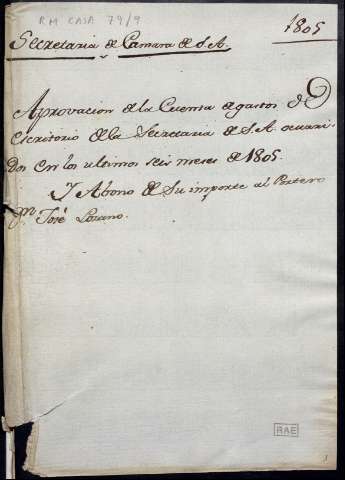 RM CAJA 79/9
1805
Secretaria de Camara de S.A.
Aprovacion de la Cuenta de gastos de
escritorio de la Secretaria de S.A. ocurri-
dos en los ultimos seis meses de 1805.
Y Abono de su importe al Portero
Dn. José Lozano.
RAE
1